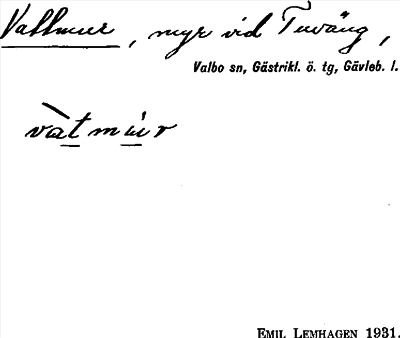 Vallmur, myr vid Tuväng,
Valbo sn, Gästrikl. ö. tg, Gävleb. l.
vàtmúr
EMIL LEMHAGEN 1931.